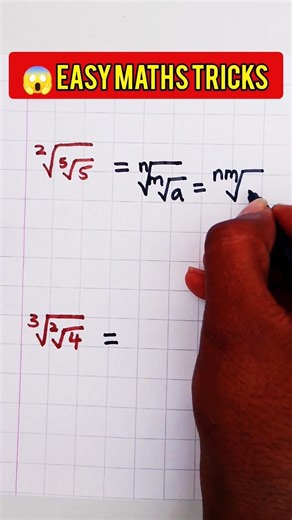 😱 EASY MATHS TRICKS
²√(⁵√5) = ⁿ√(ᵐ√a) = ⁿᵐ√
³√(²√4) =